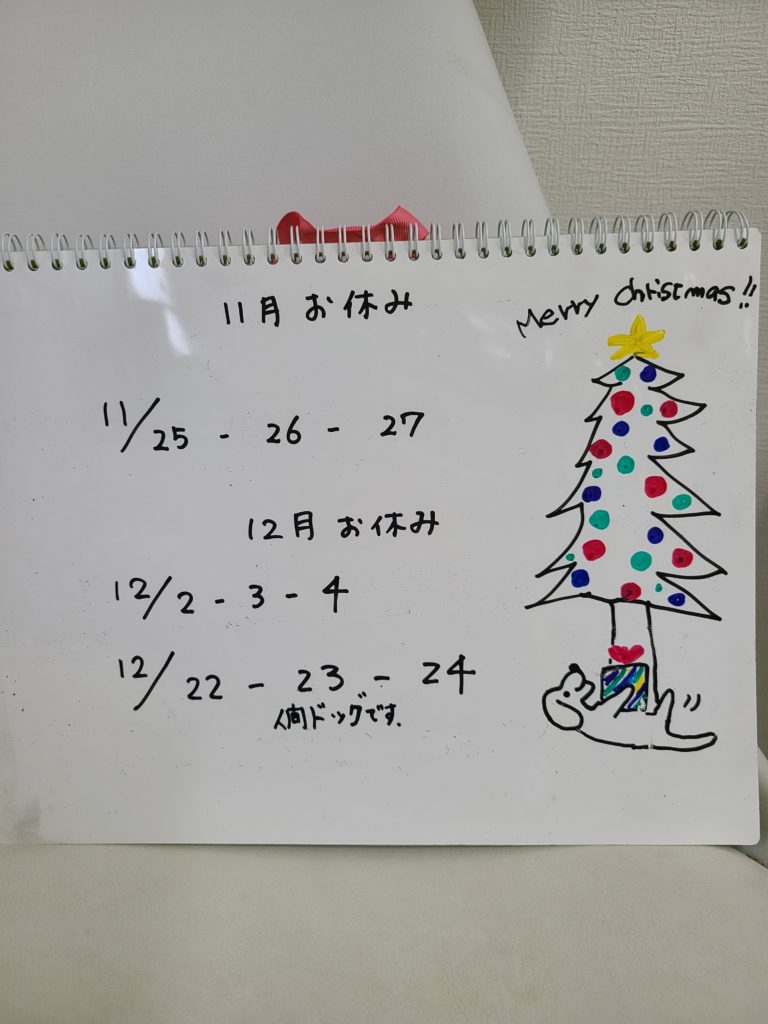 11月 お休み
Merry Christmas!!
11/25 - 26 - 27
12月 お休み
12/2 - 3 - 4
12/22 - 23 - 24
人間ドックです.